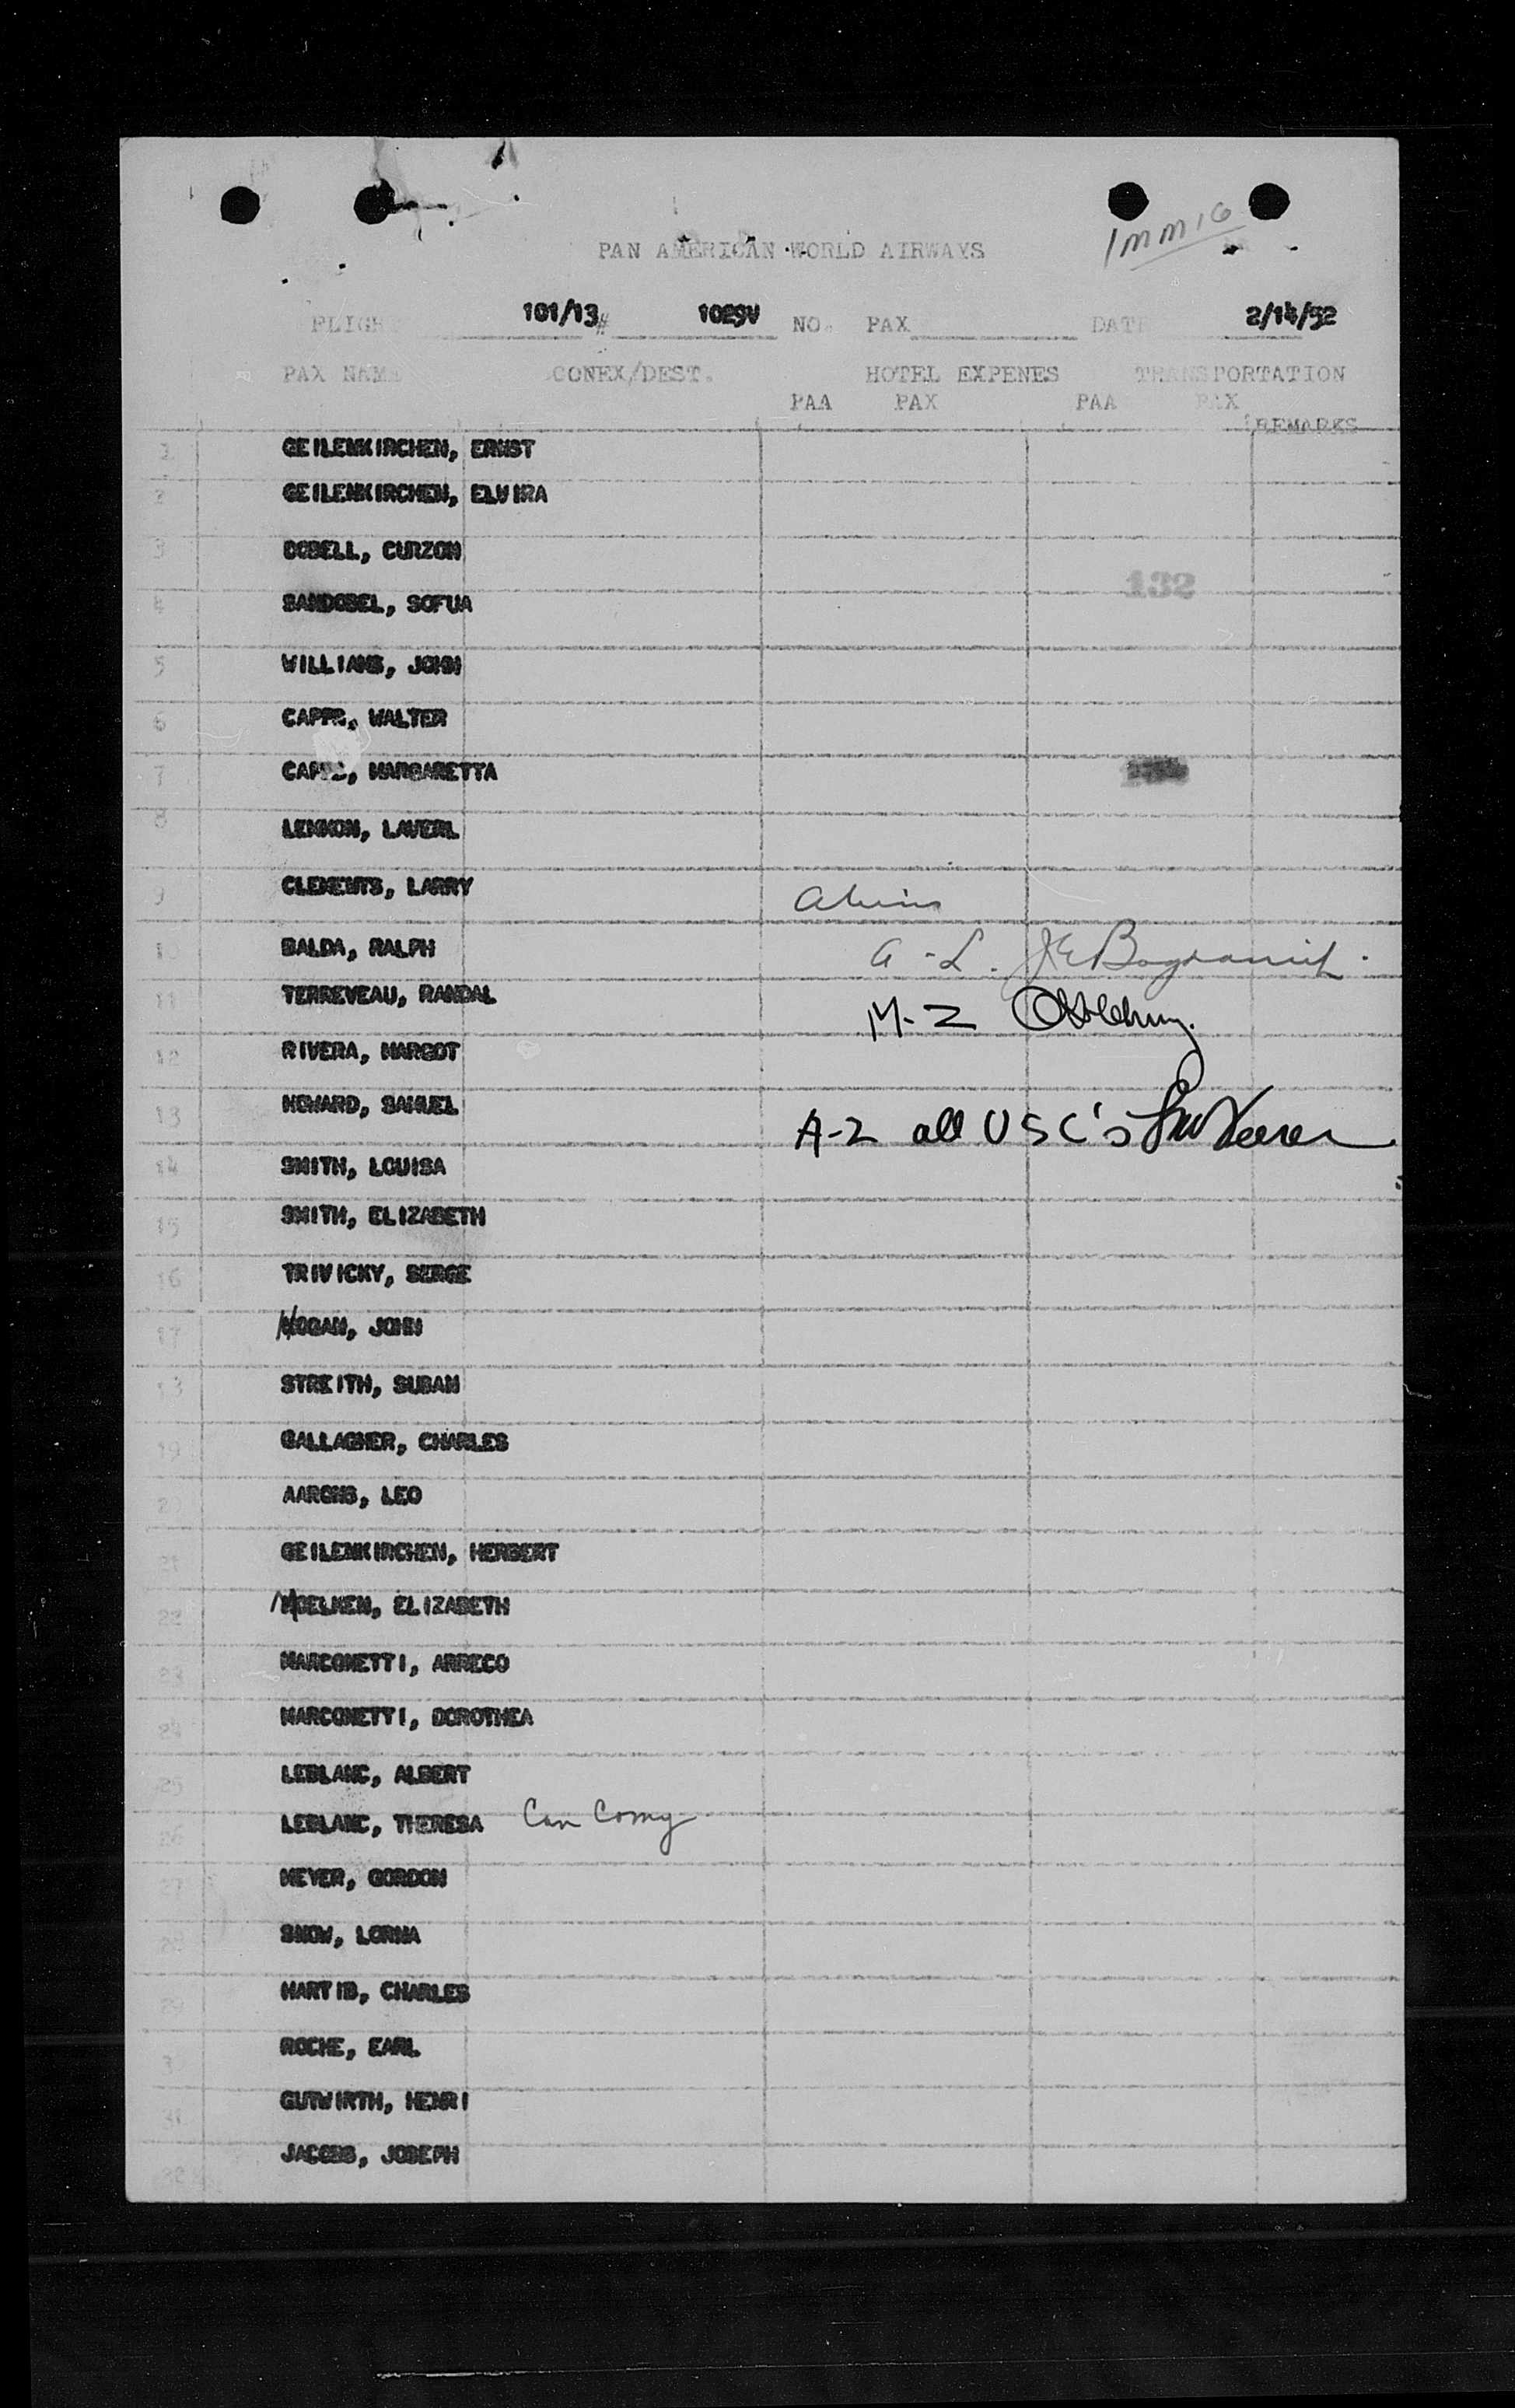 IMMIG
PAN AMERICAN WORLD AIRWAYS
FLIGHT 101/13 # 1029V NO. PAX DATE 2/14/52
PAX NAME CONEX/DEST. HOTEL EXPENES TRANSPORTATION
PAA PAX PAA PAX
REMARKS
1 GEILENKIRCHEN, ERNST
2 GEILENKIRCHEN, ELVIRA
3 DOBELL, CURZON
132
4 SANDOBEL, SOFUA
5 WILLIAMS, JOHN
6 CAPPS, WALTER
7 CAPPS, MARGARETTA
8 LENNON, LAVERL
9 CLEMENTS, LARRY
10 BALDA, RALPH A-L.
11 TERREVEAU, RANDAL M-Z
12 RIVERA, MARGOT
13 HOWARD, SAMUEL A-Z all USC's
14 SMITH, LOUISA
15 SMITH, ELIZABETH
16 TRIVICKY, SERGE
17 HOGAN, JOHN
18 STREITH, SUSAN
19 GALLAGHER, CHARLES
20 AARONS, LEO
21 GEILENKIRCHEN, HERBERT
22 ELIZABETH
23 MARCONETTI, ARRECO
24 MARCONETTI, DOROTHEA
25 LEBLANC, ALBERT
26 LEBLANC, THERESA
27 MEYER, GORDON
28 SNOW, LORNA
29 MARTIB, CHARLES
30 ROCHE, EARL
31 GUTWIRTH, HENRI
32 JACOBS, JOSEPH